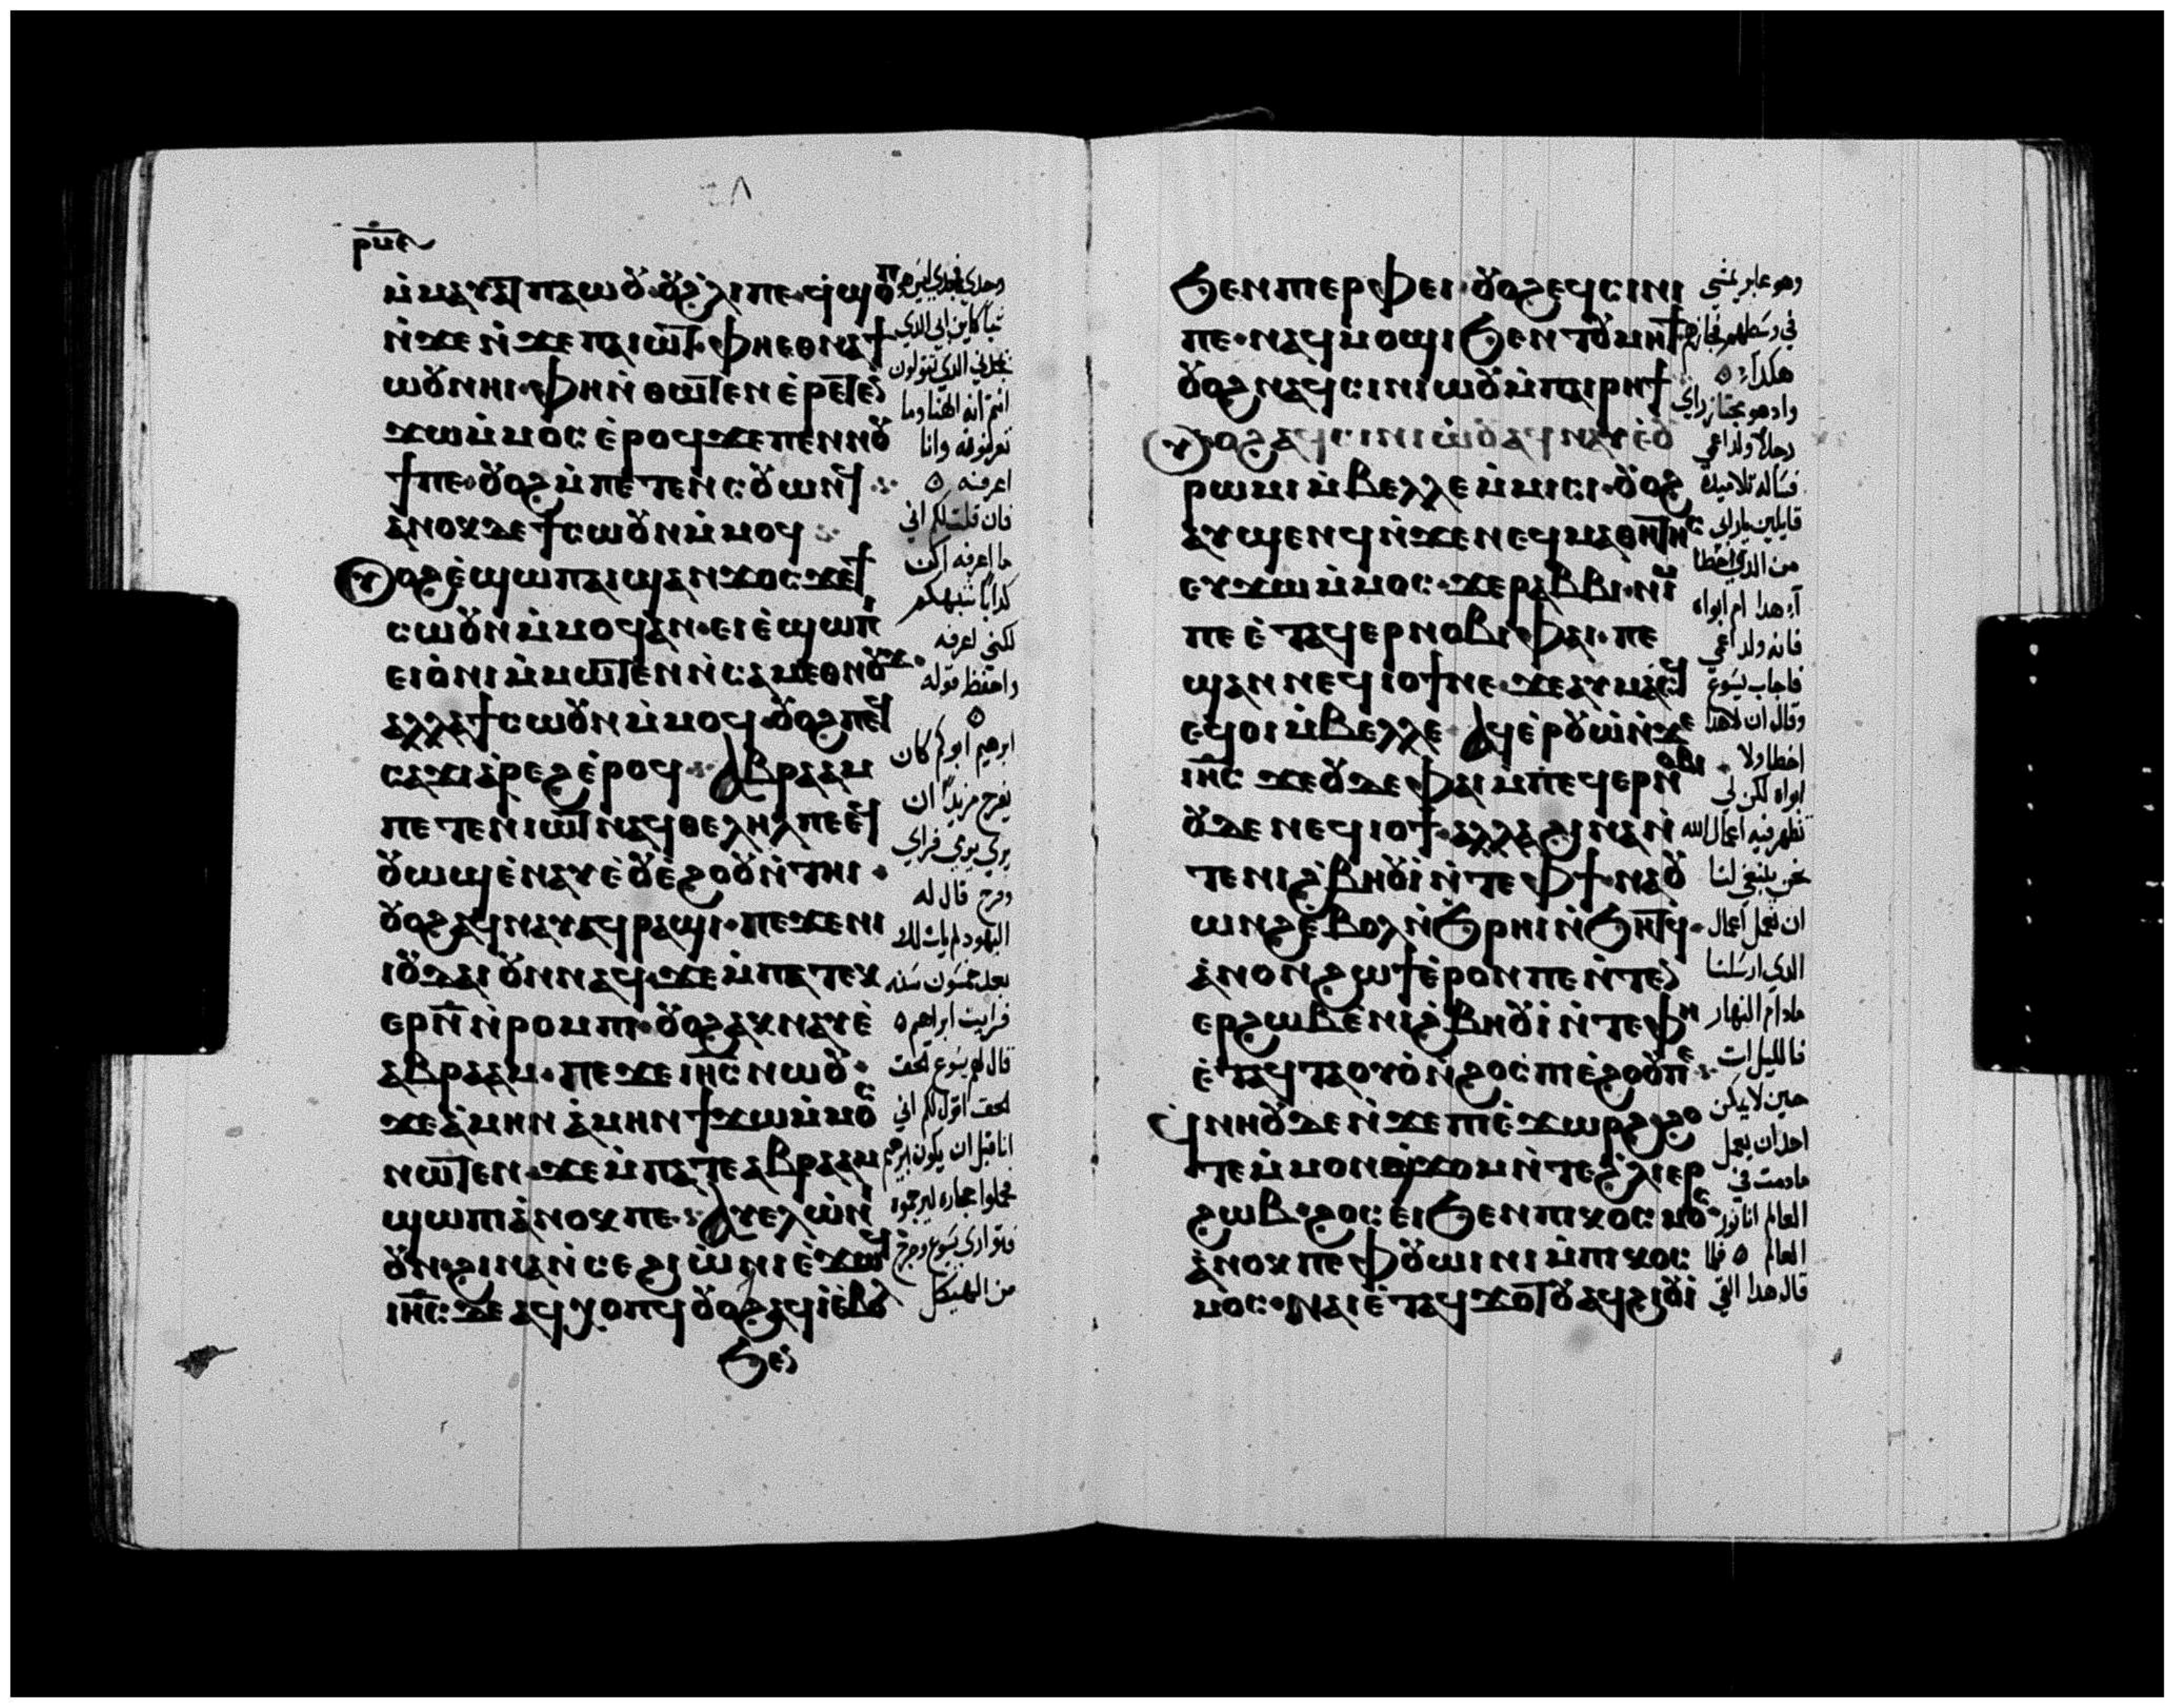 ⲣⲙⲉ
ⲙ̇ⲙⲁⲩⲁⲧ ⲡⲁⲱⲟⲩ ⲟⲩϩⲗⲓ ⲡⲉ ϥ̇ϣⲟⲡ
ⲛ̇ϫⲉ ⲛ̇ϫⲉ ⲡⲁⲓⲱⲧ ⲫⲏⲉⲑⲛⲁϯ
ⲱⲟⲩ ⲛⲏⲓ ⲫⲏ ⲛ̇ⲑⲱⲧⲉⲛ ⲉ̇ⲣⲉⲧⲉⲛ
ϫⲱ ⲙ̇ⲙⲟⲥ ⲉ̇ⲣⲟϥ ϫⲉ ⲡⲉⲛⲛⲟⲩ
ϯ ⲡⲉ ⲟⲩⲟϩ ⲙ̇ⲡⲉⲧⲉⲛⲥⲟⲩⲱⲛϥ
ⲁ̇ⲛⲟⲕ ⲇⲉ ϯⲥⲱⲟⲩⲛ ⲙ̇ⲙⲟϥ
ⲟⲩⲟϩ ⲉ̇ϣⲱⲡ ⲁⲓϣⲁⲛϫⲟⲥ ϫⲉ ϯ
ⲥⲱⲟⲩⲛ ⲙ̇ⲙⲟϥ ⲁⲛ ⲉⲓⲉ̇ϣⲱⲡⲓ
ⲉⲓⲟ̇ⲛⲓ ⲙ̇ⲙⲱⲧⲉⲛ ⲛ̇ⲥⲁⲙⲉⲑⲛⲟⲩϫ
ⲁⲗⲗⲁ ϯⲥⲱⲟⲩⲛ ⲙ̇ⲙⲟϥ ⲟⲩⲟϩ ⲡⲉϥ
ⲥⲁϫⲓ ϯⲁ̇ⲣⲉϩ ⲉ̇ⲣⲟϥ ⲁⲃⲣⲁⲁⲙ
ⲡⲉⲧⲉⲛⲓⲱⲧ ⲛⲁϥⲑⲉⲗⲏⲗ ⲡⲉ ⲉϥ
ⲟⲩⲱϣ ⲉ̇ⲛⲁⲩ ⲉ̇ⲟⲩⲉ̇ϩⲟⲟⲩ ⲛ̇ⲧⲏⲓ
ⲟⲩⲟϩ ⲁϥⲛⲁⲩ ⲁϥⲣⲁϣⲓ ⲡⲉϫⲉ ⲛⲓ
ⲓⲟⲩⲇⲁⲓ ⲟⲩⲛ ⲛⲁϥ ϫⲉ ⲙ̇ⲡⲁⲧⲉⲕ
ⲉⲣ ⲛ̄ ⲛ̇ⲣⲟⲙⲡⲓ ⲟⲩⲟϩ ⲁⲕⲛⲁⲩ ⲉ̇
ⲁⲃⲣⲁⲁⲙ ⲡⲉϫⲉ ⲓⲏ̄ⲥ̄ ⲛⲱⲟⲩ
ϫⲉ ⲁ̇ⲙⲏⲛ ⲁ̇ⲙⲏⲛ ϯϫⲱ ⲙ̇ⲙⲟⲥ
ⲛⲱⲧⲉⲛ ϫⲉ ⲙ̇ⲡⲁⲧⲉ ⲁⲃⲣⲁⲁⲙ
ϣⲱⲡⲓ ⲁ̇ⲛⲟⲕ ⲡⲉ ⲁⲩⲉⲗ ⲱ̇ⲛⲓ
ⲟⲩⲛ ϩⲓⲛⲁ ⲛ̇ⲥⲉϩⲓⲱ̇ⲛⲓ ⲉ̇ϫⲱϥ
ⲓⲏ̄ⲥ̄ ⲇⲉ ⲁϥⲭⲟⲡϥ ⲟⲩⲟϩ ⲁϥⲓ̇ ⲉ̇ⲃⲟⲗ
ϧⲉⲛ
وحدي فمجدي ليس هو
شيا كاين ابي الذي
يمجدني الذي تقولون
انتم انه الهنا وما
تعرفونه وانا
اعرفه
فان قلت لكم اني
ما اعرفه اكن
كدابا شبهكم
لكني اعرفه
واحفظ قوله
ابرهيم ابوكم كان
يفرح مريدا ان
يري يومي فراي
وفرح قال له
اليهود لم يات لك
بعد خمسون سنه
فرايت ابراهم
قال لهم يسوع الحق
الحق اقول لكم اني
انا قبل ان يكون ابرهيم
فحملوا حجاره ليرجموه
فتواري يسوع وخرج
من الهيكل
ϧⲉⲛ ⲡⲓⲉⲣⲫⲉⲓ ⲟⲩⲟϩ ⲉϥⲥⲓⲛⲓ
ⲡⲉ ⲛⲁϥⲙⲟϣⲓ ϧⲉⲛ ⲧⲟⲩⲙⲏϯ
ⲟⲩⲟϩ ⲛⲁϥⲥⲓⲛⲓⲱⲟⲩ ⲙ̇ⲡⲁⲓⲣⲏϯ
ⲟⲩⲟϩ ⲁϥⲥⲓⲛⲓⲱⲟⲩ ⲁϥⲛⲁⲩ ⲉ̇ⲟⲩ
ⲣⲱⲙⲓ ⲙ̇ⲃⲉⲗⲗⲉ ⲙ̇ⲙⲓⲥⲓ ⲟⲩⲟϩ
ⲁⲩϣⲉⲛϥ ⲛ̇ϫⲉ ⲛⲉϥⲙⲁⲑⲏⲧⲏⲥ
ⲉⲩϫⲱ ⲙ̇ⲙⲟⲥ ϫⲉ ⲣⲁⲃⲃⲓ ⲛⲓⲙ
ⲡⲉ ⲉ̇ⲧⲁϥⲉⲣⲛⲟⲃⲓ ⲫⲁⲓ ⲡⲉ
ϣⲁⲛ ⲛⲉϥⲓⲟϯ ⲛⲉ ϫⲉ ⲁⲩⲙⲁⲥϥ
ⲉϥⲟⲓ ⲙ̇ⲃⲉⲗⲗⲉ ⲁϥⲉ̇ⲣⲟⲩⲱ̇ ⲛ̇ϫⲉ
ⲓⲏ̄ⲥ̄ ϫⲉ ⲟⲩⲇⲉ ⲫⲁⲓ ⲙⲡⲉϥⲉⲣⲛⲟⲃⲓ
ⲟⲩⲇⲉ ⲛⲉϥⲓⲟϯ ⲁⲗⲗⲁ ϩⲓⲛⲁ ⲛ̇
ⲧⲉ ⲛⲓϩ̇ⲃⲏⲟⲩⲓ̇ ⲛ̇ⲧⲉ ⲫϯ ⲛⲁⲟⲩ
ⲱⲛϩ ⲉ̇ⲃⲟⲗ ⲛ̇ϧⲣⲏⲓ ⲛ̇ϧⲏⲧϥ̇
ⲁ̇ⲛⲟⲛ ϩⲱϯ ⲉ̇ⲣⲟⲛ ⲡⲉ ⲛ̇ⲧⲉⲛ
ⲉⲣϩⲱⲃ ⲉ̇ⲛⲓϩ̇ⲃⲏⲟⲩⲓ̇ ⲛ̇ⲧⲉ ⲫⲏ
ⲉ̇ⲧⲁϥⲧⲁⲟⲩⲟ̇ⲛ ϩⲟⲥ ⲡⲓⲉ̇ϩⲟⲟⲩ ⲡⲉ
ϥ̇ⲛⲏⲟⲩ ⲇⲉ ⲛ̇ϫⲉ ⲡⲓⲉ̇ϫⲱⲣϩ ϩⲟ
ⲧⲉ ⲙ̇ⲙⲟⲛ ϣϫⲟⲙ ⲛ̇ⲧⲉ ϩ̇ⲗⲓ ⲉⲣ
ϩⲱⲃ ϩⲟⲥ ⲉⲓ ϧⲉⲛ ⲡⲓⲕⲟⲥⲙⲟⲥ
ⲁ̇ⲛⲟⲕ ⲡⲉ ⲫⲟⲩⲱⲓⲛⲓ ⲙ̇ⲡⲓⲕⲟⲥ
ⲙⲟⲥ ⲛⲁⲓ ⲉ̇ⲧⲁϥϫⲟⲧⲟⲩ ⲁϥϩⲓⲟⲩⲓ̇
وهو عابر يمشي
في وسطهم فجازهم
هكدا
واد هو مجتاز راي
رجلا ولد اعمي
فساله تلاميده
قايلين يا رابي
من الذي اخطا
اهدا ام ابواه
فانه ولد اعمي
فاجاب يسوع
وقال ان لا هدا
اخطا ولا
ابواه لكن لي
تظهر فيه اعمال الله
نحن ينبغي لنا
ان نعمل اعمال
الدي ارسلنا
مادام النهار
فالليل ات
حين لا يمكن
احد ان يعمل
ما دمت في
العالم انا نور
العالم فلما
قال هدا القي